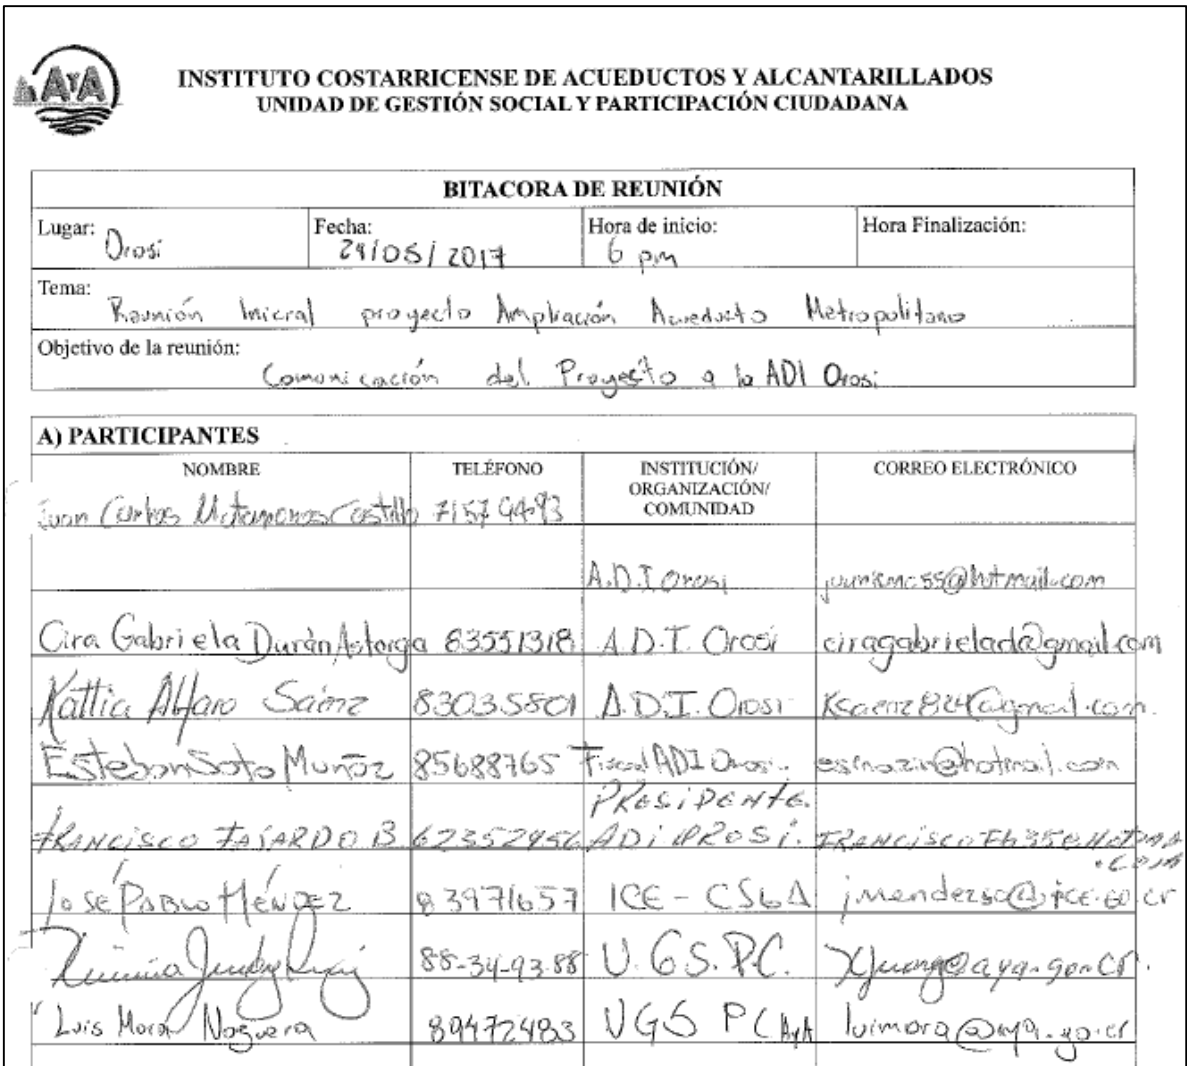 AyA
INSTITUTO COSTARRICENSE DE ACUEDUCTOS Y ALCANTARILLADOS
UNIDAD DE GESTIÓN SOCIAL Y PARTICIPACIÓN CIUDADANA
BITACORA DE REUNIÓN
Lugar: Orosi Fecha: 29/05/2017 Hora de inicio: 6 pm Hora Finalización:
Tema: Reunión Inicial proyecto Ampliación Acueducto Metropolitano
Objetivo de la reunión: Comunicación del Proyecto a la ADI Orosi
A) PARTICIPANTES
NOMBRE TELÉFONO INSTITUCIÓN/ ORGANIZACIÓN/ COMUNIDAD CORREO ELECTRÓNICO
Juan Carlos Matamoros Castillo
A.D.I Orosi
Cira Gabriela Durán Astorga 83551318 A.D.I. Orosi ciragabrielad@gmail.com
Kattia Alfaro Sáenz 83035801 A.D.I. Orosi Ksaenz824@gmail.com.
Esteban Soto Muñoz 85688765 Fiscal ADI Orosi
PRESIDENTE.
FRANCISCO FAJARDO B. 62352956 ADI OROSI.
José Pablo Méndez 83971657 ICE -
88-34-93-88 U.G.S.P.C.
Luis Mora Noguera 89472483 UGS PC AyA luimora@aya.go.cr